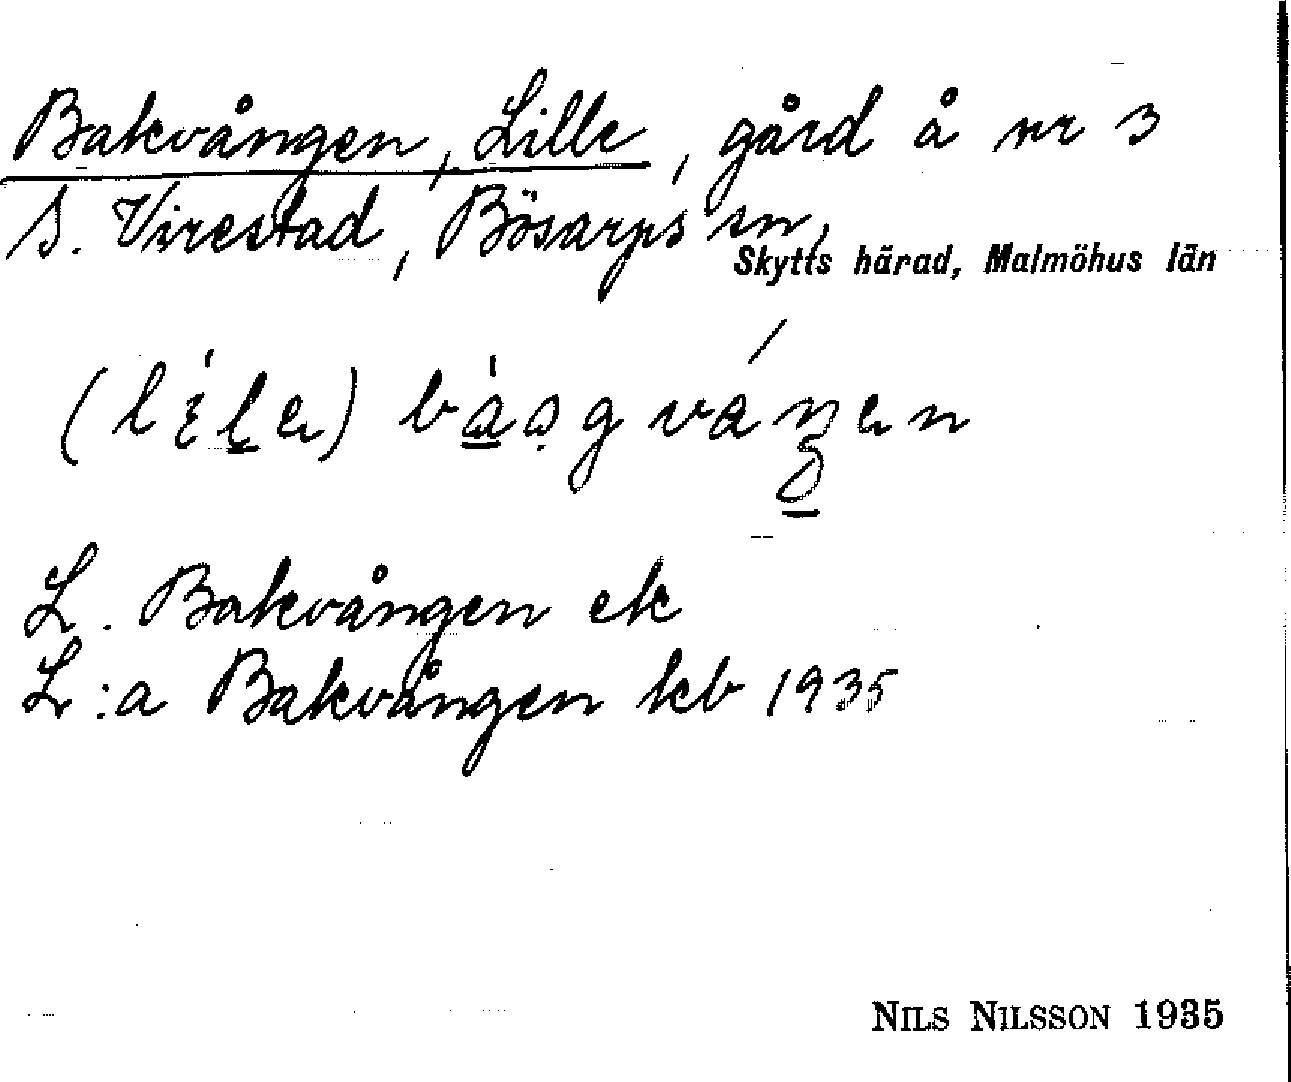 Bakvången, Lille, gård å nr 3
S. Virestad, Bösarps sn,
Skytts härad, Malmöhus län
L. Bakvången ek
L:a Bakvången kb 1935
NILS NILSSON 1935